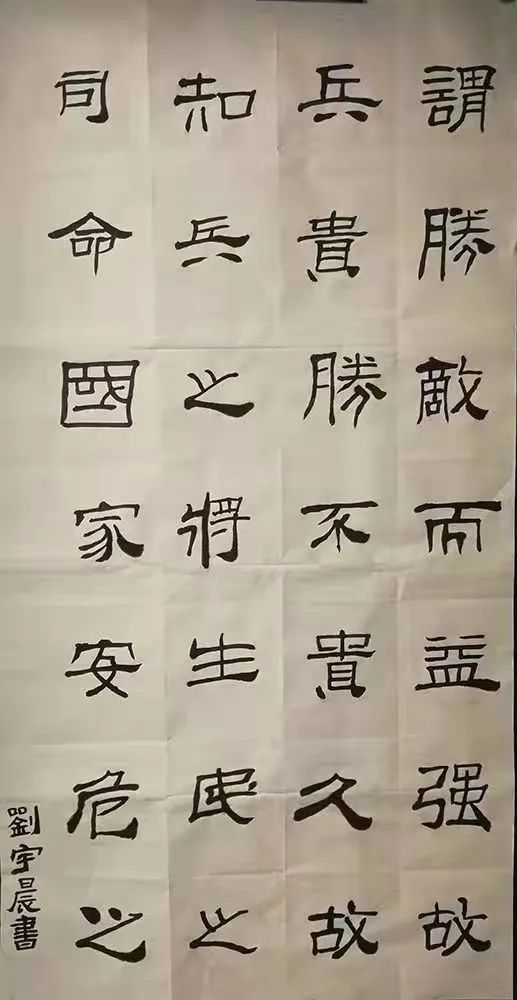 謂勝敵而益强故
兵貴勝不貴久故
知兵之將生民之
司命國家安危之
劉宇晨書